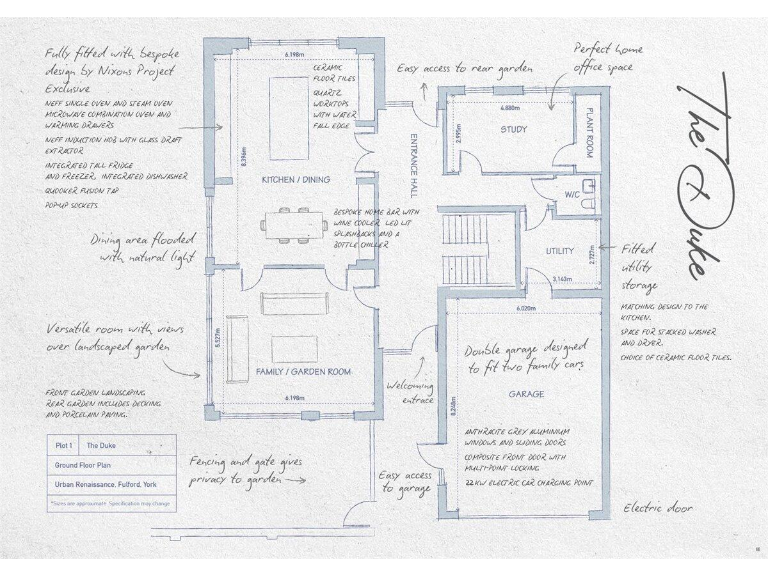 Fully fitted with bespoke
design by Nixons Project
Exclusive
NEFF SINGLE OVEN AND STEAM OVEN
MICROWAVE COMBINATION OVEN AND
WARMING DRAWERS
NEFF INDUCTION HOB WITH GLASS DRAFT
EXTRACTOR
INTEGRATED TALL FRIDGE
AND FREEZER, INTEGRATED DISHWASHER
QUOOKER FUSION TAP
POP-UP SOCKETS
Dining area flooded
with natural light
Versatile room with views
over landscaped garden
FRONT GARDEN LANDSCAPING
REAR GARDEN INCLUDES DECKING
AND PORCELAIN PAVING.
Plot 1 The Duke
Ground Floor Plan
Urban Renaissance, Fulford, York
*Sizes are approximate. Specification may change
6.198m
CERAMIC
FLOOR TILES
QUARTZ
WORKTOPS
WITH WATER
FALL EDGE
8.396m
KITCHEN / DINING
BESPOKE HOME BAR WITH
WINE COOLER, LED LIT
SPLASHBACKS AND A
BOTTLE CHILLER
5.527m
FAMILY / GARDEN ROOM
6.198m
Fencing and gate gives
privacy to garden
Easy access to rear garden
ENTRANCE HALL
Welcoming
entrace
Easy access
to garage
Perfect home
office space
4.880m
2.995m
STUDY
PLANT ROOM
W/C
UTILITY
2.727m
3.163m
Fitted
utility
storage
MATCHING DESIGN TO THE
KITCHEN.
SPACE FOR STACKED WASHER
AND DRYER.
CHOICE OF CERAMIC FLOOR TILES.
6.020m
Double garage designed
to fit two family cars
GARAGE
8.248m
ANTHRACITE GREY ALUMINIUM
WINDOWS AND SLIDING DOORS
COMPOSITE FRONT DOOR WITH
MULTI-POINT LOCKING
22KW ELECTRIC CAR CHARGING POINT
Electric door
The Duke